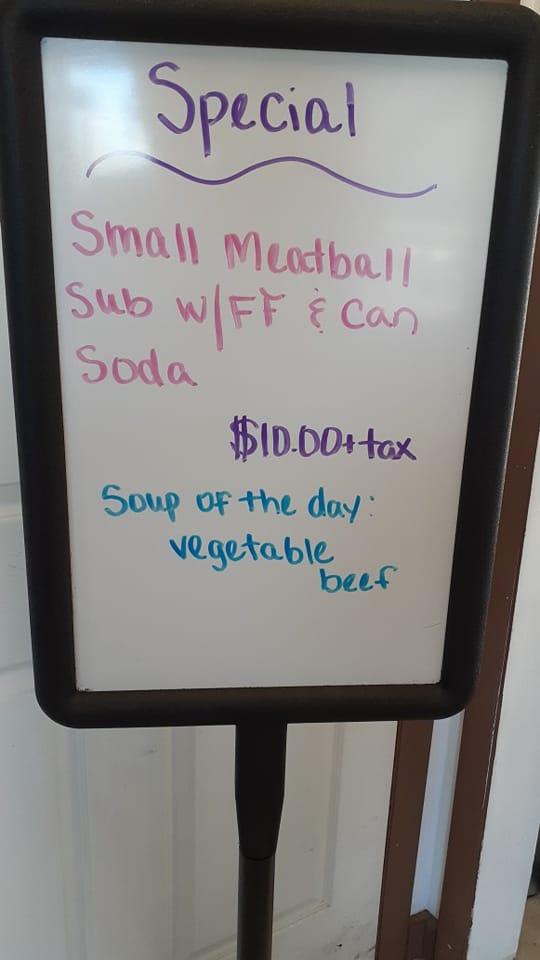 Special
Small Meatball
Sub w/FF & Can
Soda
$10.00+tax
Soup of the day:
vegetable
beef